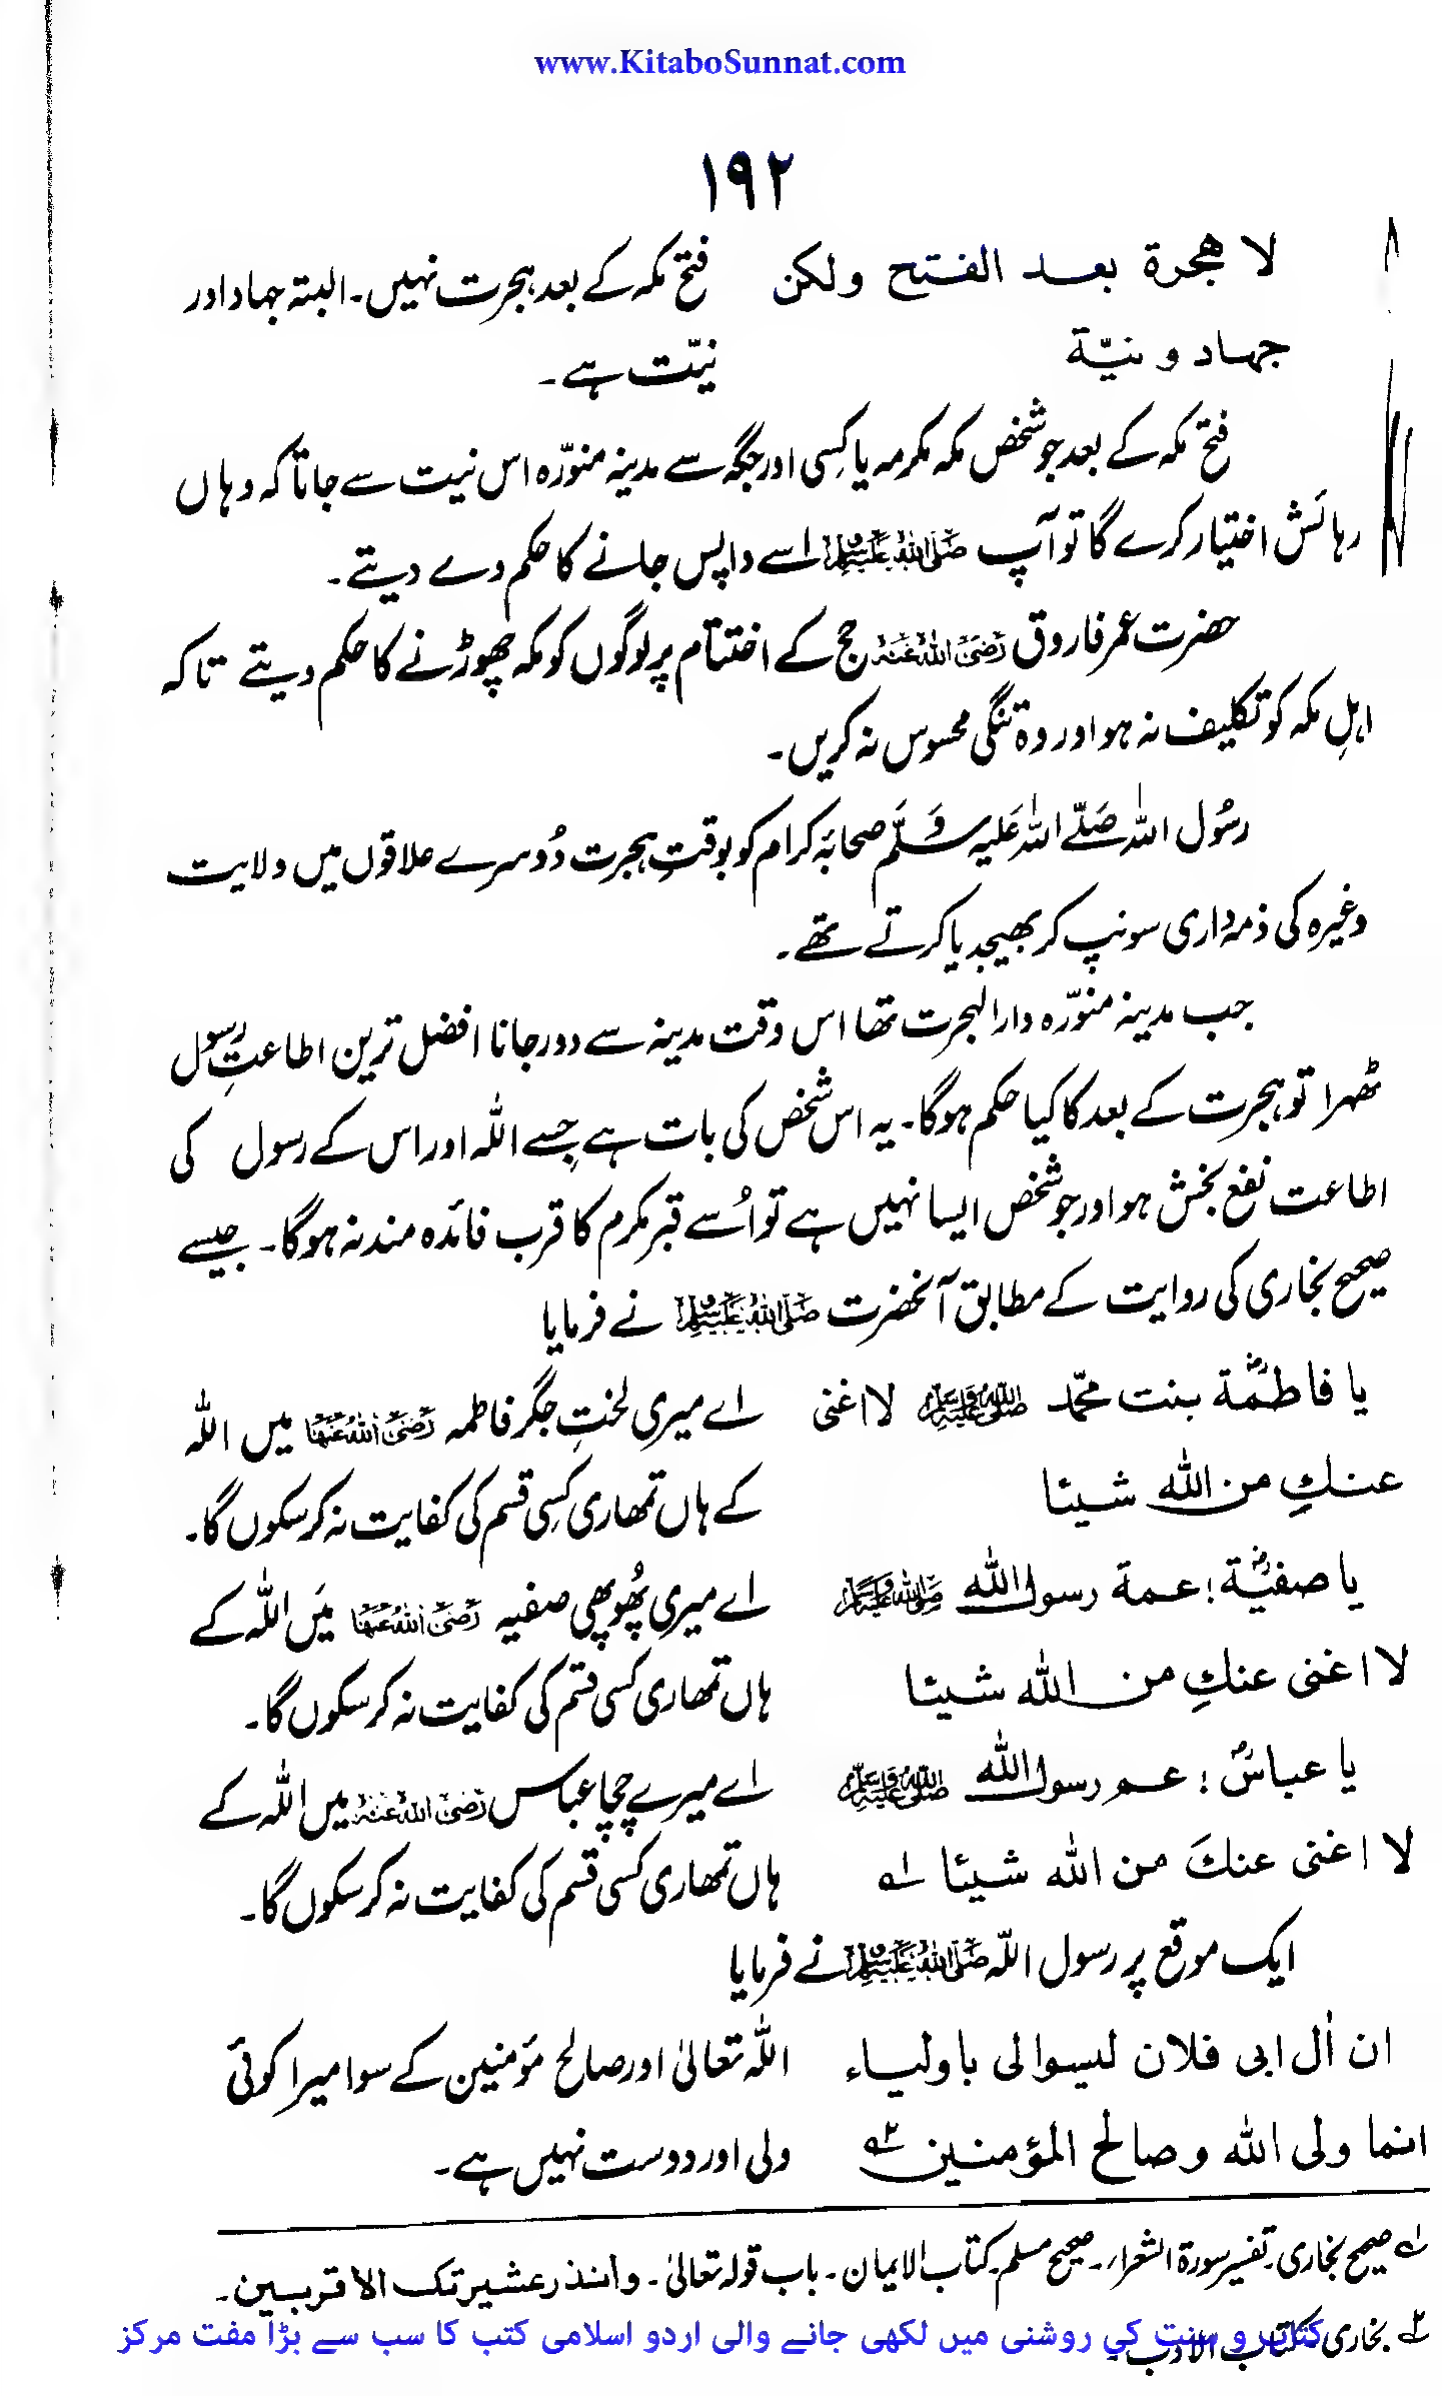 www.KitaboSunnat.com
۱۹۲
لا هجرة بعد الفتح ولكن فتح مکہ کے بعد ہجرت نہیں۔ البتہ جہاد اور
جهاد و نيّة نیّت ہے۔
فتح مکہ کے بعد جو شخص مکہ مکرمہ یا کِسی اور جگہ سے مدینہ منورّہ اس نیت سے جاتا کہ وہاں
رہائش اختیار کرے گا تو آپ ﷺ اسے واپس جانے کا حکم دے دیتے۔
حضرت عمر فاروق رَضِیَ اللهُ عَنْهُ حج کے اختتام پر لوگوں کو مکہ چھوڑنے کا حکم دیتے تاکہ
اہلِ مکہ کو تکلیف نہ ہو اور وہ تنگی محسوس نہ کریں۔
رسُول اللہ صَلّے اللہ عَلیہ وَسَلَّم صحابۂ کرام کو بوقتِ ہجرت دُوسرے علاقوں میں ولایت
وغیرہ کی ذمہ داری سونپ کر بھیجد یا کرتے تھے۔
جب مدینہ منورّہ دار الہجرت تھا اس وقت مدینہ سے دور جانا افضل ترین اطاعتِ رسول
ٹھہرا تو ہجرت کے بعد کا کیا حکم ہوگا۔ یہ اس شخص کی بات ہے جِسے اللہ اور اس کے رسول کی
اطاعت نفع بخش ہو اور جو شخص ایسا نہیں ہے تو اُسے قبرِ مکرم کا قرب فائدہ مند نہ ہوگا۔ جیسے
صحیح بخاری کی روایت کے مطابق آنحضرت ﷺ نے فرمایا
يا فاطمةؓ بنت محمّد ﷺ لا اغنى اے میری لختِ جگر فاطمہ رَضِیَ اللهُ عَنْهَا میں اللہ
عنكِ من الله شيئا کے ہاں تمھاری کِسی قسم کی کفایت نہ کر سکوں گا۔
يا صفيّةؓ؛ عمة رسول الله ﷺ اے میری پُھوپھی صفیہ رَضِیَ اللهُ عَنْهَا مَیں اللہ کے
لا اغنى عنكِ من الله شيئا ہاں تمھاری کسی قسم کی کفایت نہ کر سکوں گا۔
يا عباسؓ؛ عم رسول الله ﷺ اے میرے چچا عباس رَضِیَ اللهُ عَنْهُ میں اللہ کے
لا اغنى عنكَ من الله شيئا ۱؎ ہاں تمھاری کسی قسم کی کفایت نہ کر سکوں گا۔
ایک موقع پر رسول اللّٰہ ﷺ نے فرمایا
ان اٰل ابى فلان ليسوا لى باولياء اللہ تعالیٰ اور صالح مؤمنین کے سوا میرا کوئی
انما ولى الله وصالح المؤمنين ۲؎ ولی اور دوست نہیں ہے۔
۱؎ صحیح بخاری۔ تفسیر سورۃ الشعراء۔ صحیح مسلم۔ کتاب الایمان۔ باب قولہ تعالیٰ۔ وانذر عشیرتک الاقربین۔
۲؎ بخاری کتاب الادب۔
کتاب و سنت کی روشنی میں لکھی جانے والی اردو اسلامی کتب کا سب سے بڑا مفت مرکز